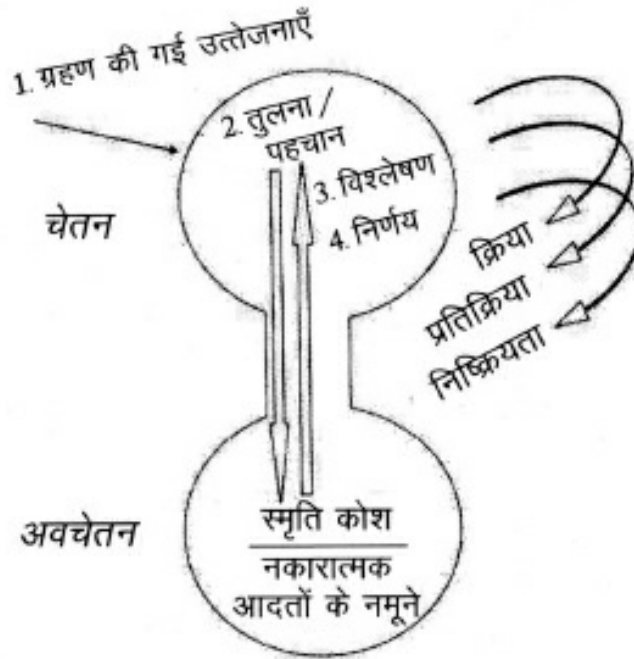 1. ग्रहण की गई उत्तेजनाएँ
2. तुलना /
पहचान
3. विश्लेषण
4. निर्णय
चेतन
क्रिया
प्रतिक्रिया
निष्क्रियता
अवचेतन
स्मृति कोश
नकारात्मक
आदतों के नमूने